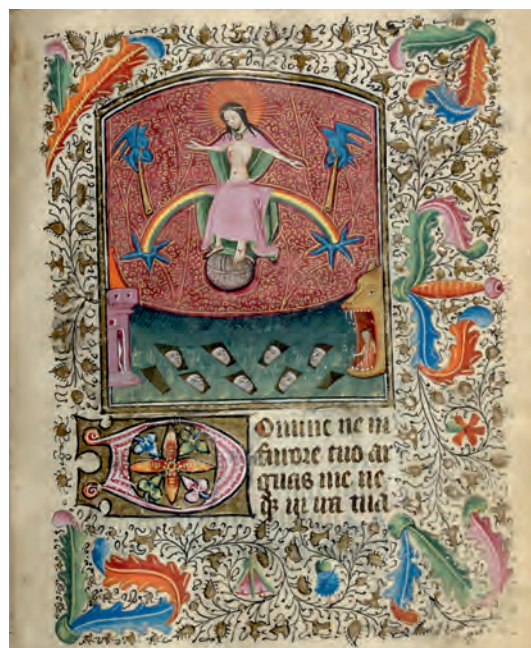 Domine ne in
furore tuo ar
guas me ne
qꝫ in ira tua